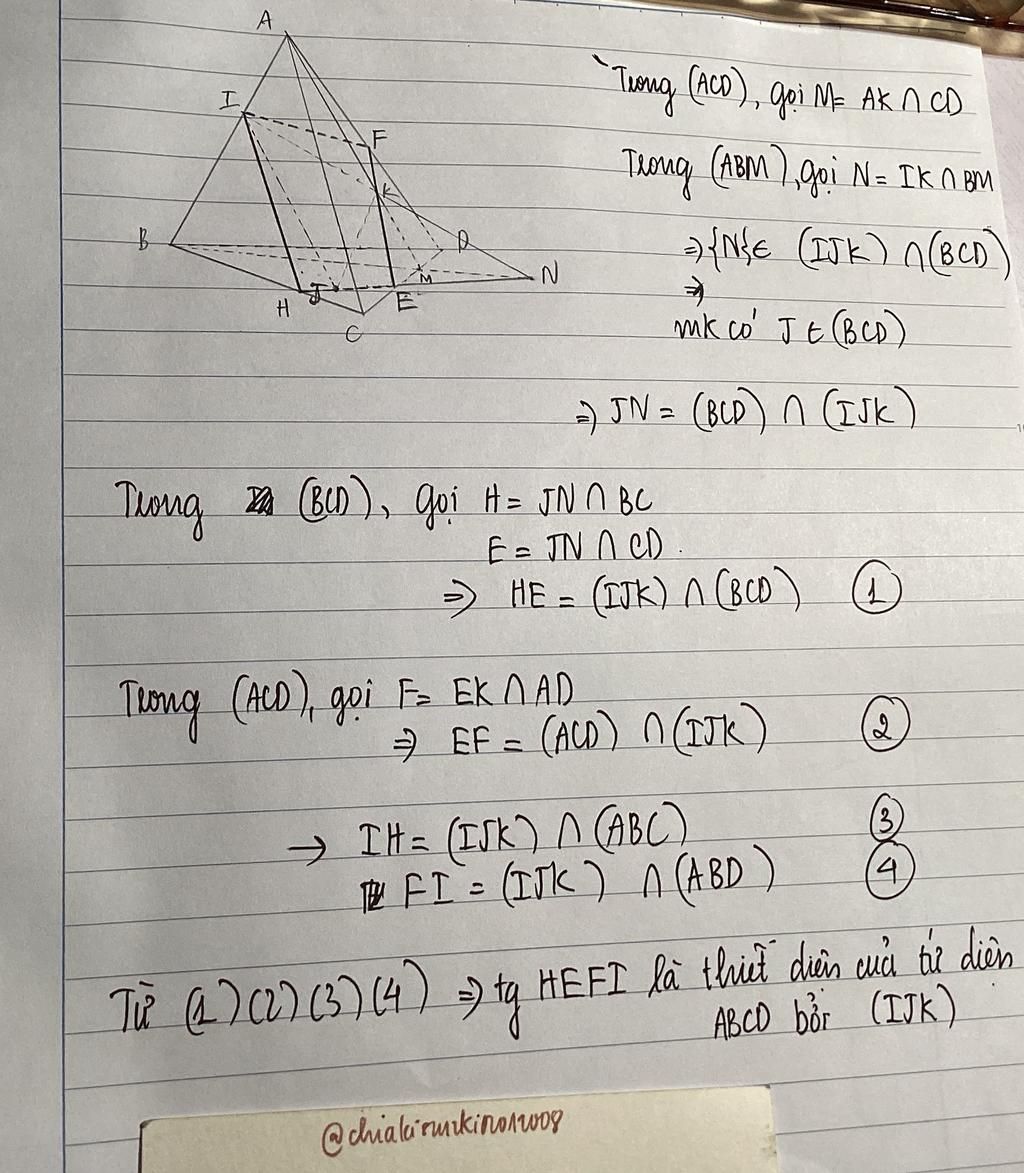 A
I
F
K
B
D
M
N
H
J
E
C
Trong (ACD), gọi M= AK ∩ CD
Trong (ABM), gọi N= IK ∩ BM
⇒{N}∈ (IJK) ∩ (BCD)
⇒
mk có J ∈ (BCD)
⇒ JN = (BCD) ∩ (IJK)
Trong (BCD), gọi H= JN ∩ BC
E = JN ∩ CD.
⇒ HE = (IJK) ∩ (BCD) ①
Trong (ACD), gọi F= EK ∩ AD
⇒ EF = (ACD) ∩ (IJK) ②
→ IH= (IJK) ∩ (ABC) ③
FI = (IJK) ∩ (ABD) ④
Từ (1)(2)(3)(4) ⇒ tg HEFI là thiết diên của tứ diên
ABCD bởi (IJK)